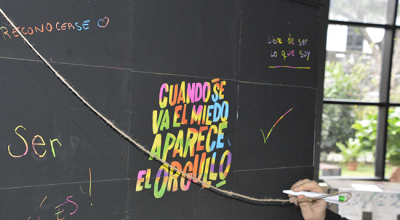 RECONOCERSE ♡
Libre de ser
lo que soy
CUANDO SE
VA EL MIEDO
APARECE
EL ORGULLO
Ser
ES !